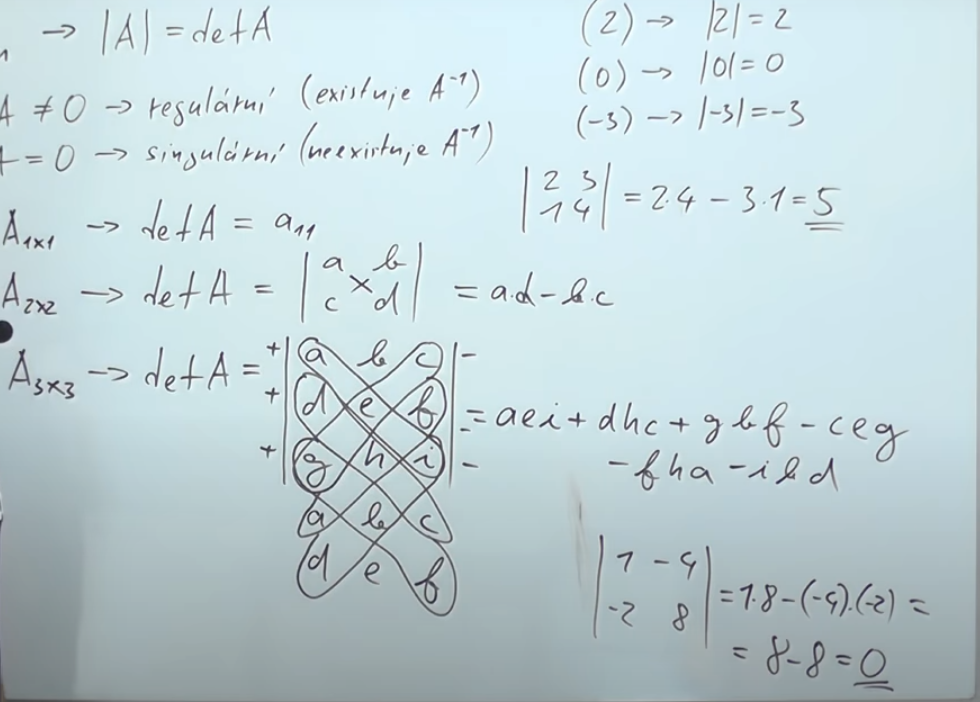 → |A| = det A
A ≠ 0 → regulární (existuje A⁻¹)
= 0 → singulární (neexistuje A⁻¹)
A₁ₓ₁ → det A = a₁₁
A₂ₓ₂ → det A = | a b | = a.d - b.c
c d
A₃ₓ₃ → det A = + | a b c | -
+ | d e f | - = aei + dhc + gbf - ceg
+ | g h i | - - fha - ibd
a b c
d e f
(2) → |2| = 2
(0) → |0| = 0
(-3) → |-3| = -3
| 2 3 | = 2.4 - 3.1 = 5
1 4
| 1 -4 | = 1.8 - (-4).(-2) =
-2 8
= 8 - 8 = 0